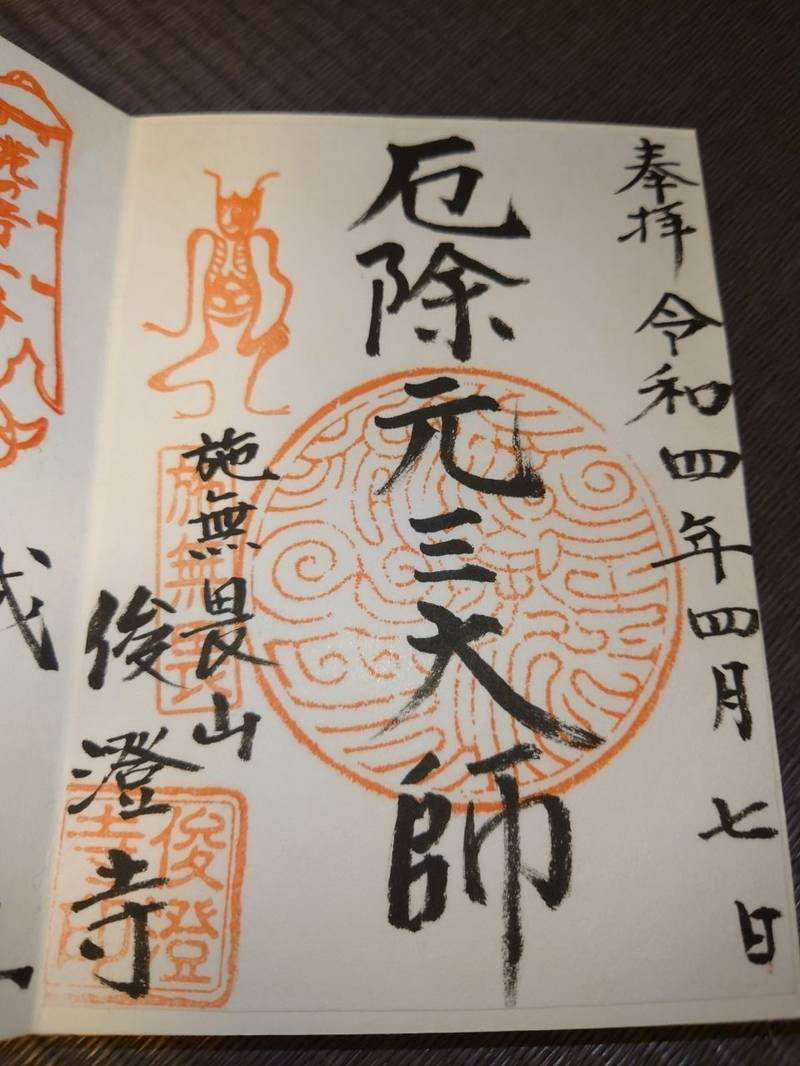 奉拝 令和四年四月七日
厄除元三大師
施無畏山
俊澄寺
施無畏
俊澄寺印